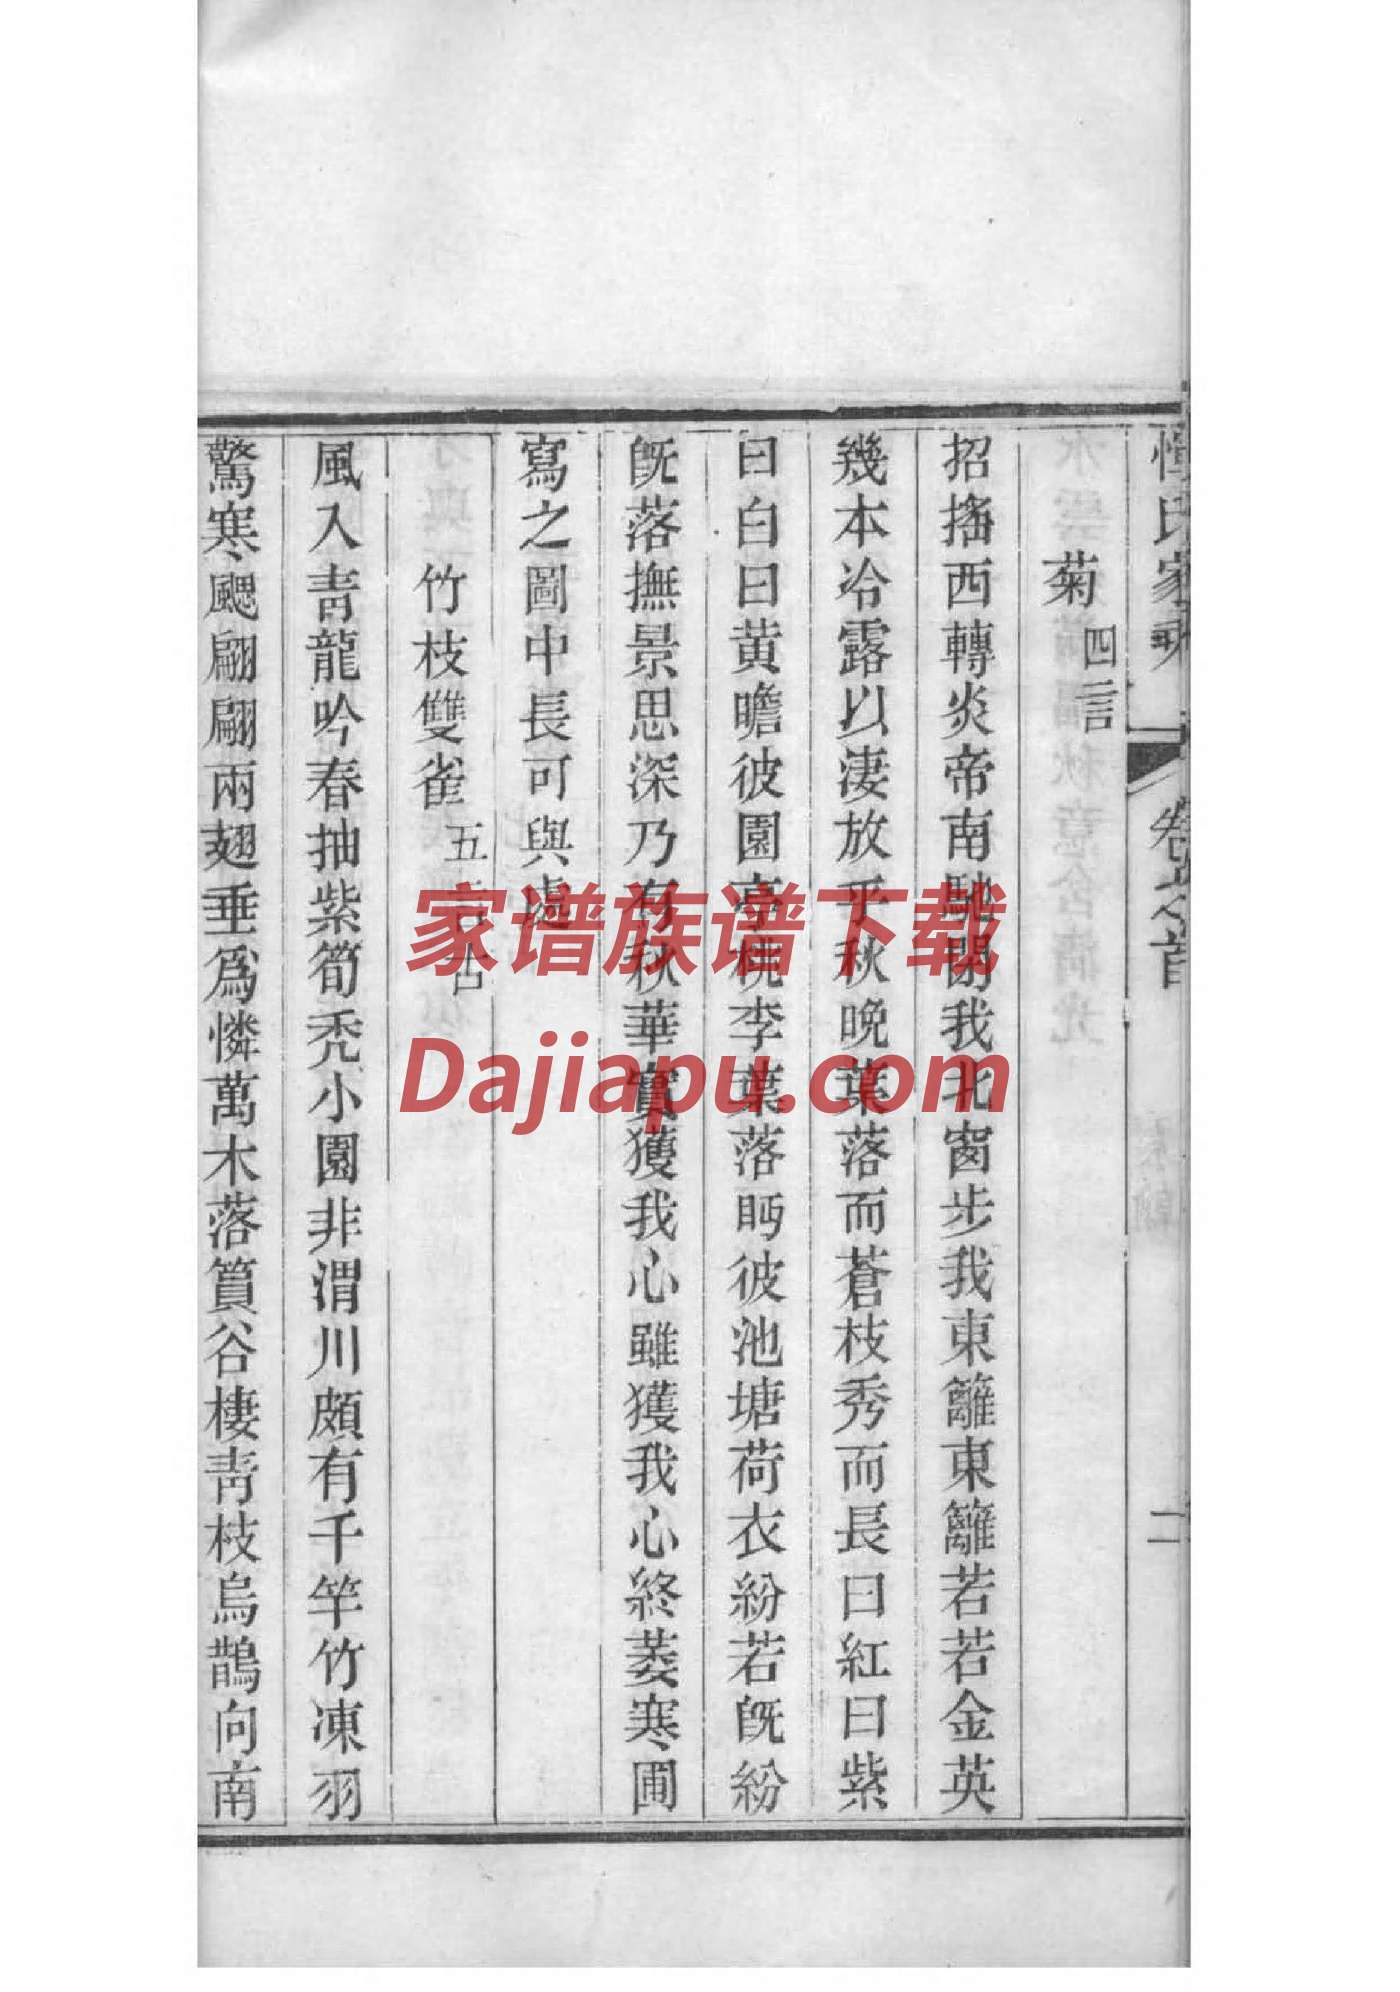 惲氏家乘 卷之首 二
菊 四言
招搖西轉炎帝南馳閉我北窗步我東籬東籬若若金英
幾本冷露以淒放乎秋晚葉落而蒼枝秀而長曰紅曰紫
曰白曰黃瞻彼園亭桃李葉落眄彼池塘荷衣紛若既紛
既落撫景思深乃有秋華實獲我心雖獲我心終萎寒圃
寫之圖中長可與處
竹枝雙雀 五言古
風入青龍吟春抽紫筍禿小園非渭川頗有千竿竹凍羽
驚寒颸翩翩兩翅垂為憐萬木落篔谷棲青枝烏鵲向南
家谱族谱下载
Dajiapu.com